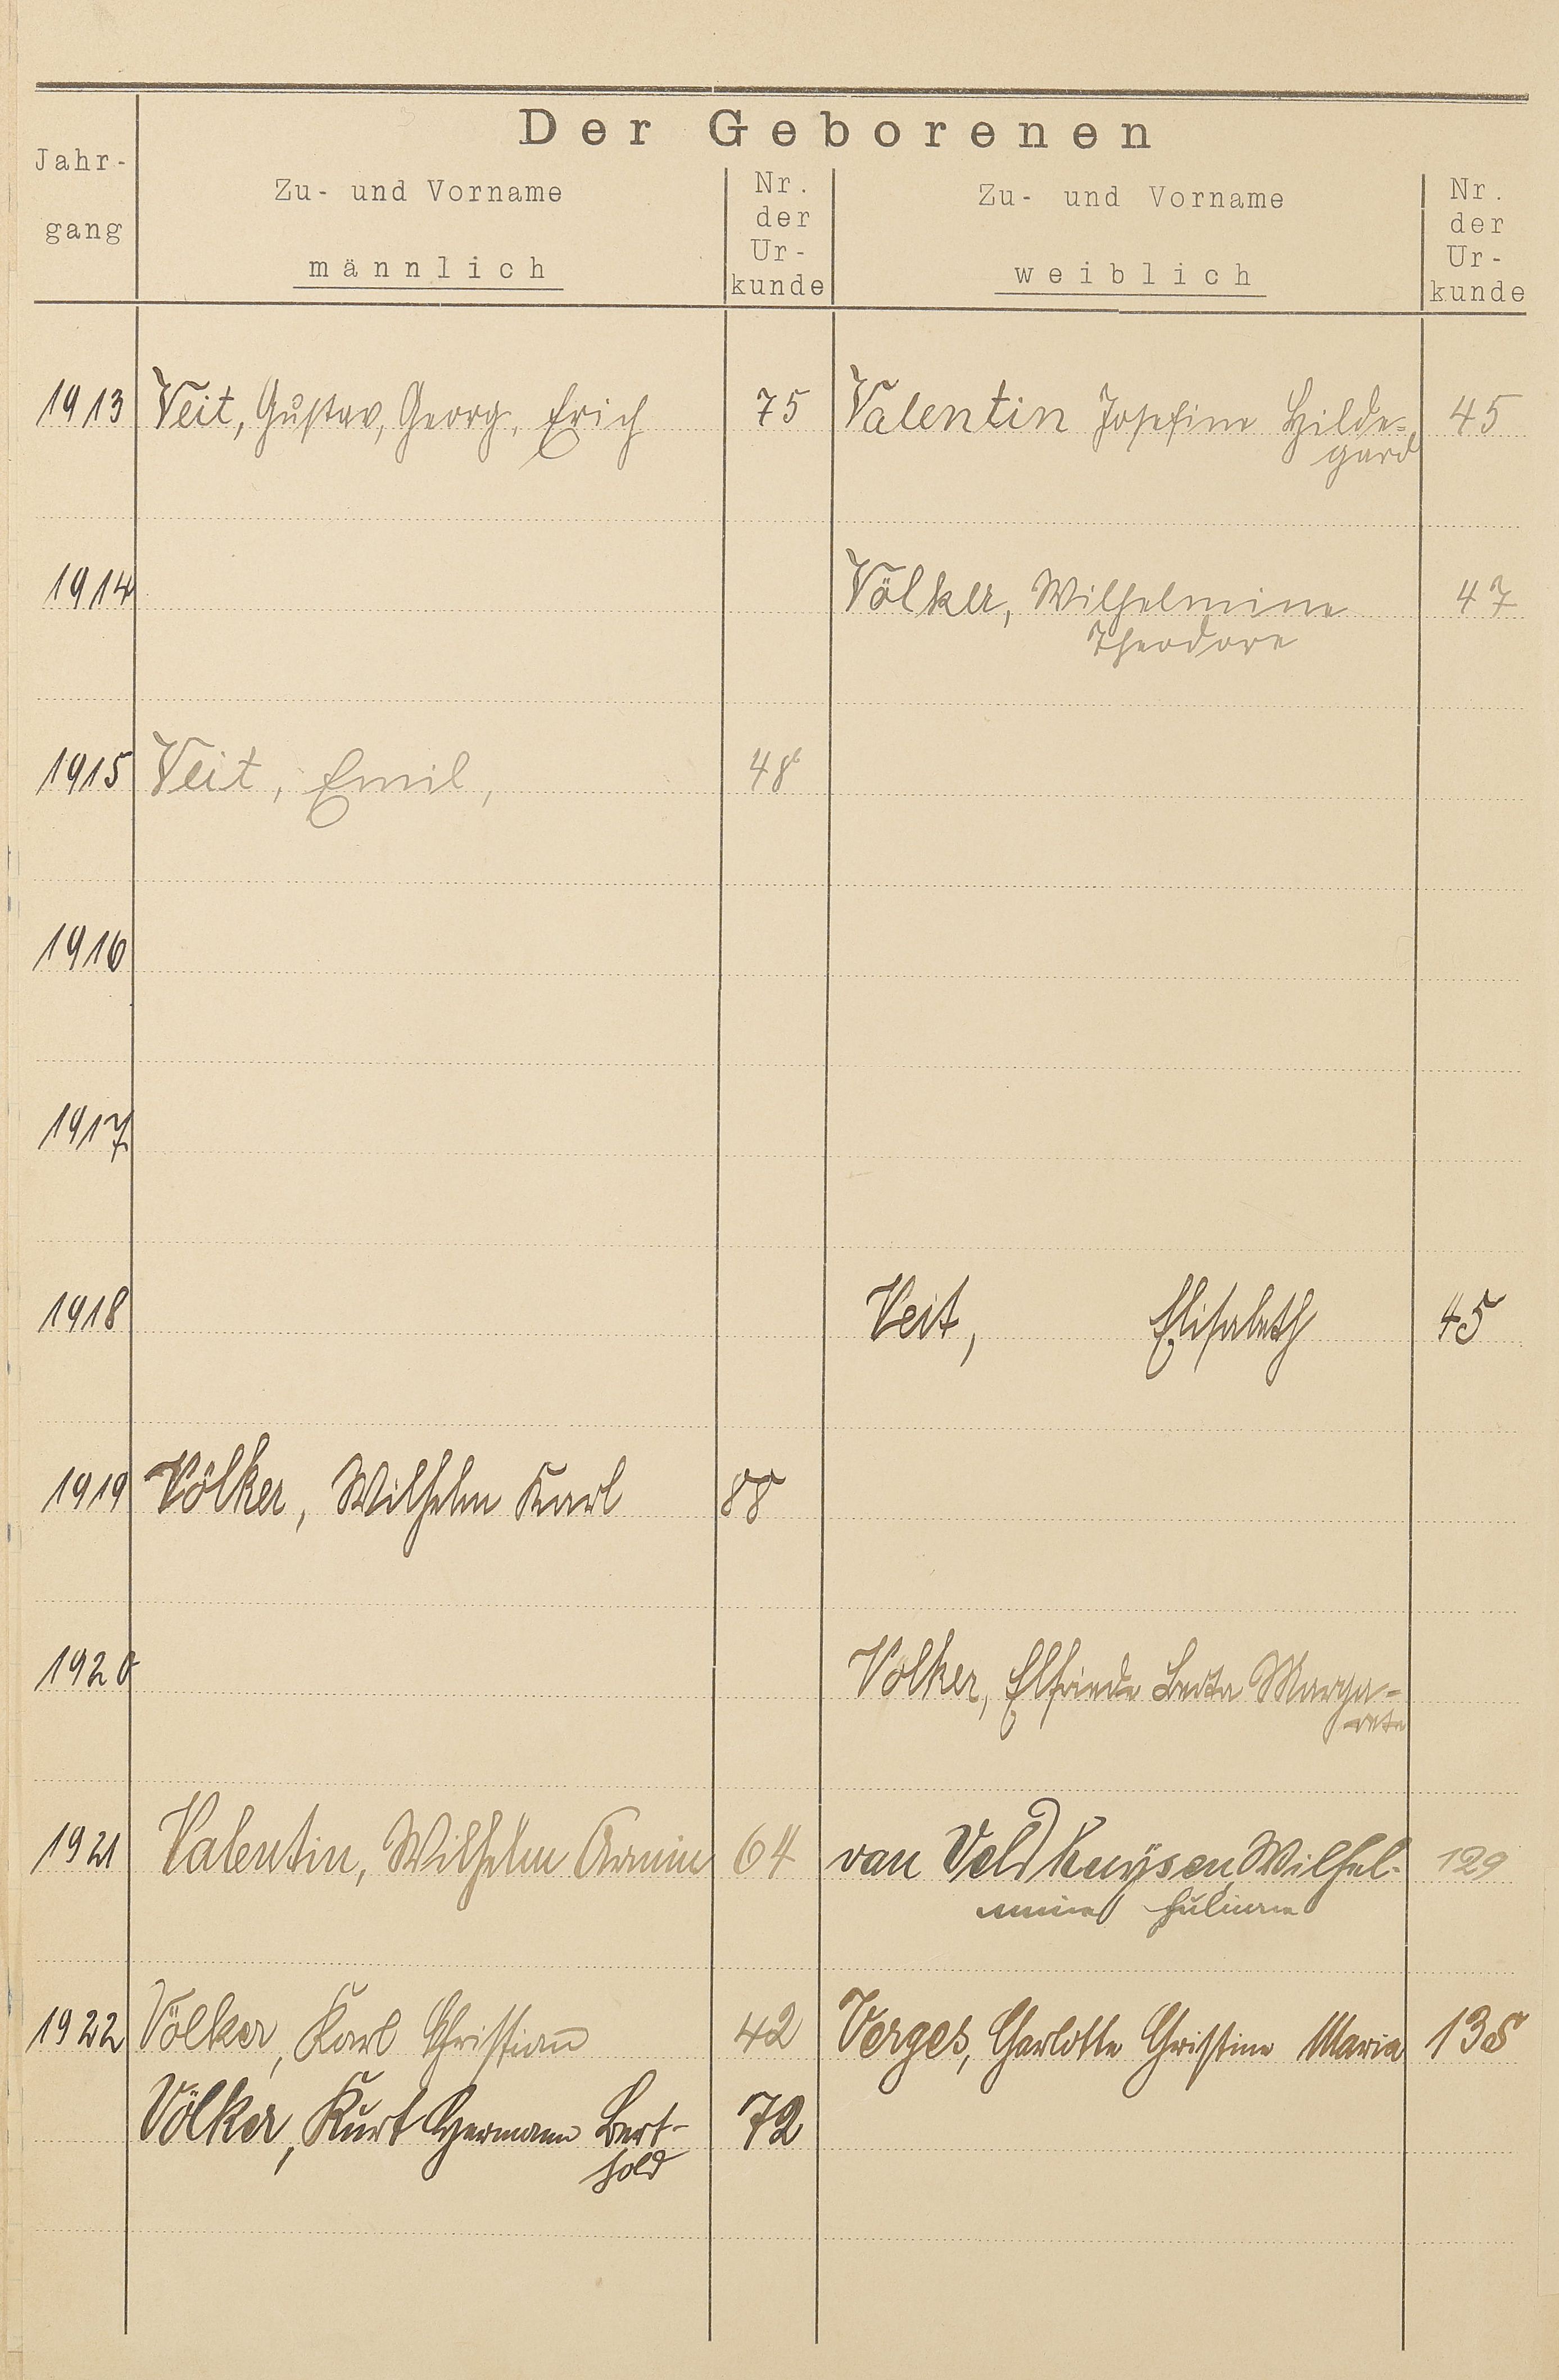 Der Geborenen
Jahr-
gang
Zu- und Vorname
männlich
Nr.
der
Ur-
kunde
Zu- und Vorname
weiblich
Nr.
der
Ur-
kunde
1913 Veit, Gustav, Georg, Erich 75 Valentin Josefine Hilde= 45
gard
1914 Völker, Wilhelmine 47
Theodore
1915 Veit, Emil, 48
1916
1917
1918 Veit, Elisabeth 45
1919 Völker, Wilhelm Karl 88
1920 Völker, Elfriede Berta Marga-
rete
1921 Valentin, Wilhelm Armin 64 van Veldhuysen, Wilhel- 129
mine
1922 Völker, Karl Christian 42 Verges, Charlotte Christine Maria 138
Völker, Kurt Hermann Bert- 72
hold